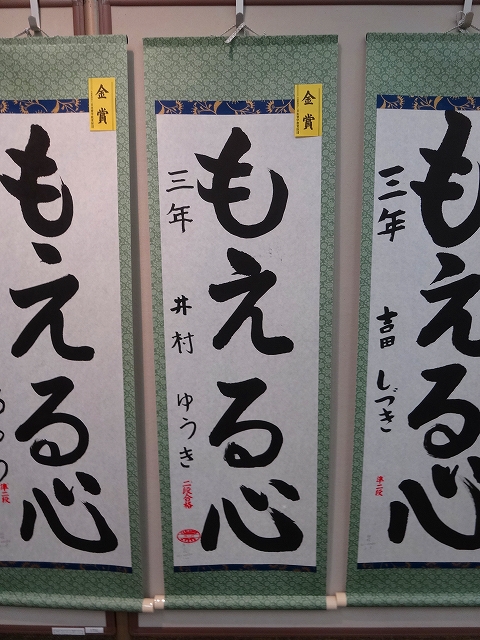 金賞
もえる心
三年 吉田 しづき
準二段
もえる心
三年 井村 ゆうき
二段合格
金賞
もえる心
準二段